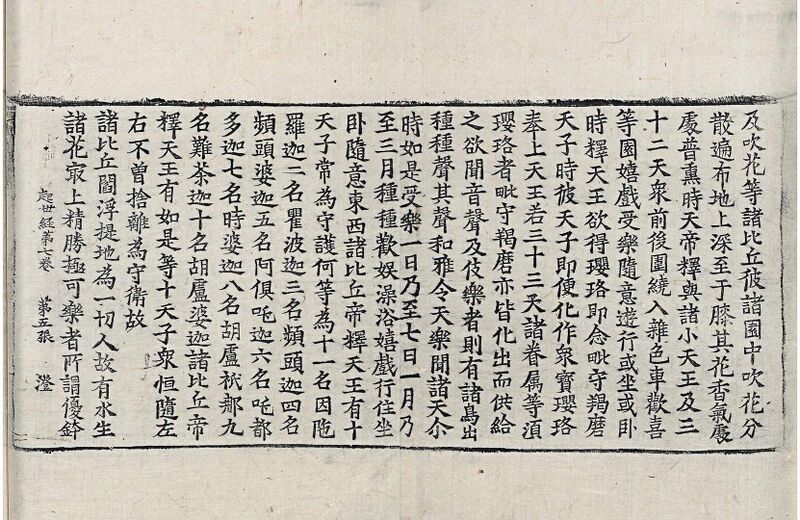 及吹花等諸比丘彼諸園中吹花分
散遍布地上深至于膝其花香氣處
處普熏時天帝釋與諸小天王及三
十二天衆前後圍繞入雜色車歡喜
等園嬉戲受樂隨意遊行或坐或卧
時釋天王欲得瓔珞即念毗守羯磨
天子時彼天子即便化作衆寶瓔珞
奉上天王若三十三天諸眷属等須
瓔珞者毗守羯磨亦皆化出而供給
之欲聞音聲及伎樂者則有諸鳥出
種種聲其聲和雅令天樂聞諸天尒
時如是受樂一日乃至七日一月乃
至三月種種歡娛澡浴嬉戲行住坐
卧隨意東西諸比丘帝釋天王有十
天子常為守護何等為十一名因陁
羅迦二名瞿波迦三名頻頭迦四名
頻頭婆迦五名阿俱吒迦六名吒都
多迦七名時婆迦八名胡盧祇那九
名難荼迦十名胡盧婆迦諸比丘帝
釋天王有如是等十天子衆恒隨左
右不曾捨離為守衛故
諸比丘閻浮提地為一切人故有水生
諸花㝡上精勝極可樂者所謂優鉢
起世經第七卷 第五張 澄